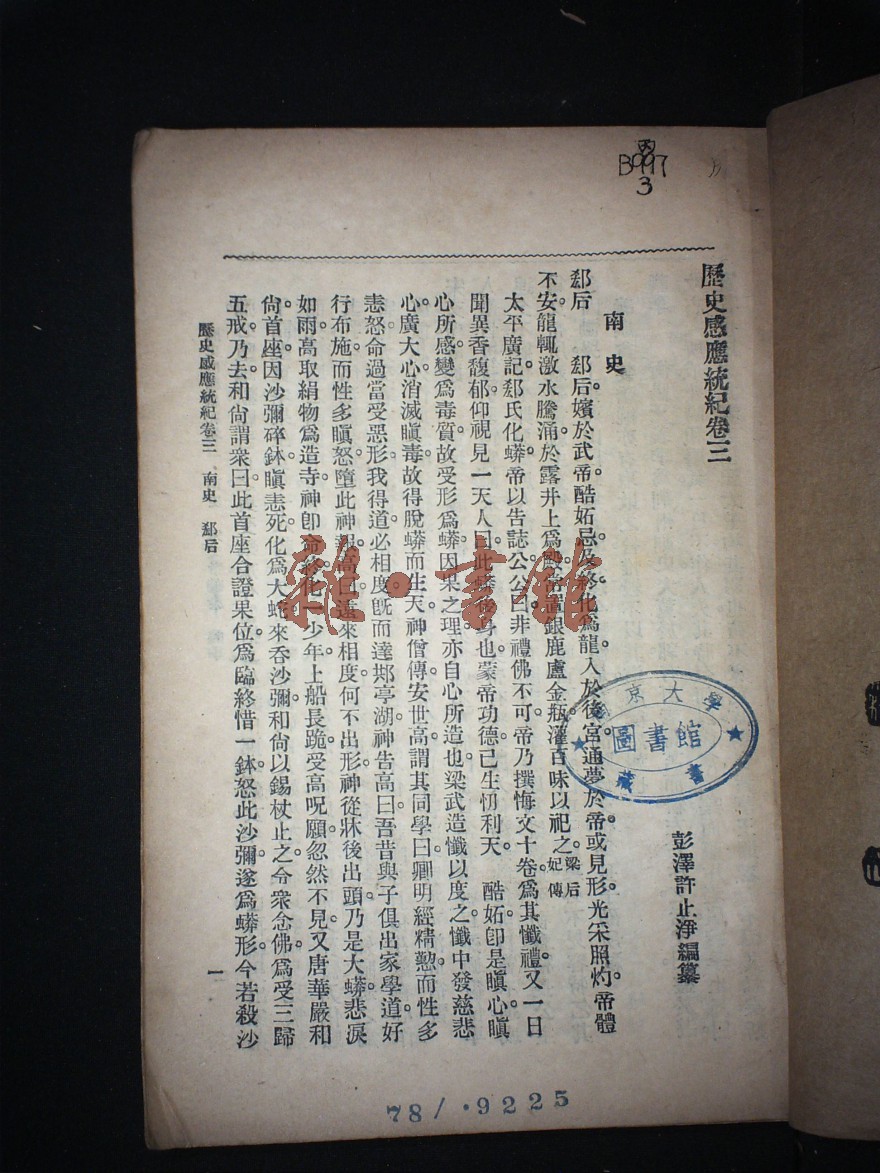 丙
B997
3
歷史感應統紀卷三
彭澤許止淨編纂
南史
郄后　郄后嬪於武帝。酷妬忌。及終化爲龍。入於後宮。通夢於帝。或見形光采照灼。帝體
不安。龍輒激水騰涌。於露井上爲殿。常置銀鹿盧金瓶灌百味以祀之。梁后妃傳
太平廣記。郄氏化蟒。帝以告誌公。公曰。非禮佛不可。帝乃撰悔文十卷。爲其懺禮。又一日
聞異香馥郁。仰視見一天人曰。此蟒後身也。蒙帝功德。已生忉利天　酷妬卽是瞋心。瞋
心所感。變爲毒質。故受形爲蟒。因果之理。亦自心所造也。梁武造懺以度之。懺中發慈悲
心廣大心。消滅瞋毒。故得脫蟒而生天。神僧傳安世高謂其同學曰。卿明經精懃。而性多
恚怒。命過當受惡形。我得道必相度。旣而達䢼亭湖。神告高曰。吾昔與子俱出家學道。好
行布施。而性多瞋怒。墮此神報。高曰。遠來相度。何不出形。神從牀後出頭。乃是大蟒。悲淚
如雨。高取絹物爲造寺。神卽命終。化一少年。上船長跪。受高呪願。忽然不見。又唐華嚴和
尙首座。因沙彌碎鉢。瞋恚死。化爲大蛇。來吞沙彌。和尙以錫杖止之。令衆念佛。爲受三歸
五戒。乃去。和尙謂衆曰。此首座合證果位。爲臨終惜一鉢。怒此沙彌。遂爲蟒形。今若殺沙
歷史感應統紀卷三　南史　郄后
一
京大學
圖書館
藏書
雜·書館
78/.9225